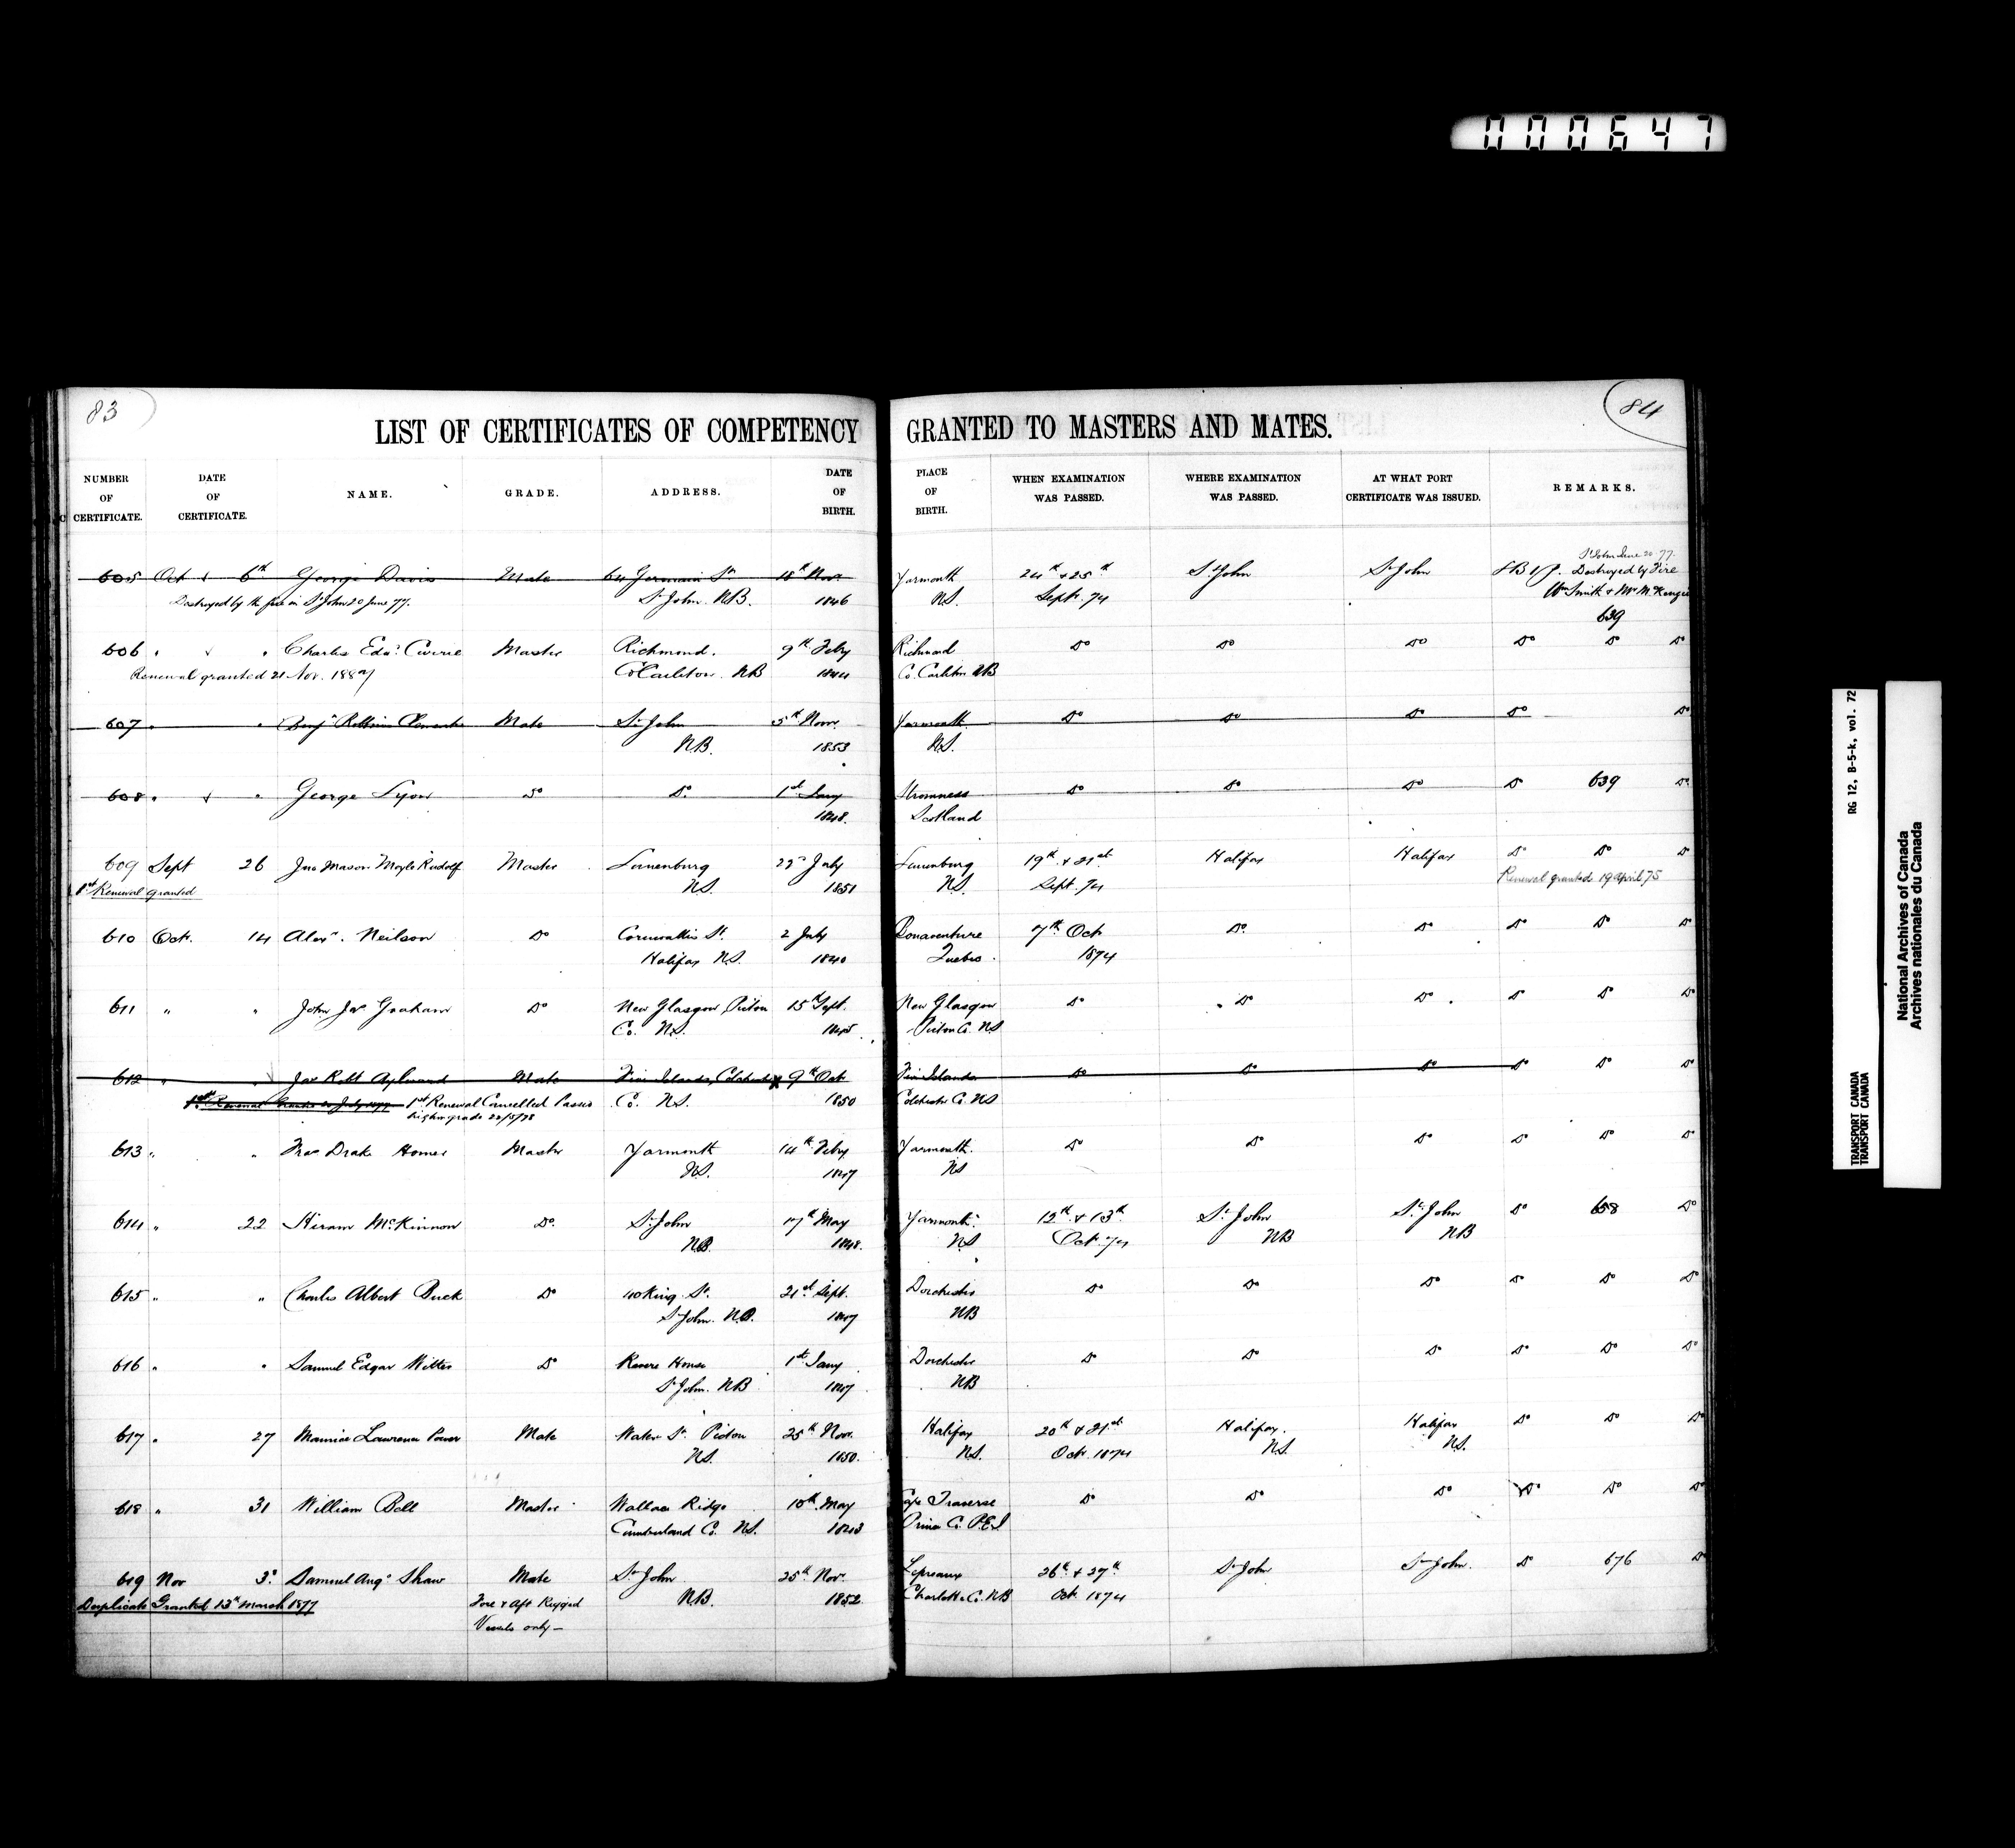 000647
83
84
LIST OF CERTIFICATES OF COMPETENCY GRANTED TO MASTERS AND MATES.
NUMBER OF CERTIFICATE. DATE OF CERTIFICATE. NAME. GRADE. ADDRESS. DATE OF BIRTH. PLACE OF BIRTH. WHEN EXAMINATION WAS PASSED. WHERE EXAMINATION WAS PASSED. AT WHAT PORT CERTIFICATE WAS ISSUED. REMARKS.
St John June 20. 77.
605 Oct 6th George Davis Mate 64 Germain St 18th Nov Yarmouth 24th & 25th St John St John Destroyed by Fire
Destroyed by the fire in St John 20 June 77. St John. N.B. 1846 N.S. Sept. 74 Wm Smith & Mr McKenzie
639
606 " " Charles Edwd Currie Master Richmond. 9th Feby Richmond Do Do Do Do Do Do
Renewal granted 21 Nov. 1887 Co Carleton. NB 1844 Co. Carleton NB
607 " " Benjn Robbins Clements Mate St John 5th Novr Yarmouth Do Do Do Do Do
N.B. 1853 N.S.
608 " " George Lyon Do Do 1st Jany Stromness Do Do Do Do 639 Do
1848. Scotland
609 Sept 26 Jno Mason Moyle Rudolf Master Lunenburg July Lunenburg 19th & 21st Halifax Halifax Do Do Do
1st Renewal granted N.S. 1851 N.S. Sept. 74 Renewal granted 19 April 75
610 Oct. 14 Alexr. Neilson Do Cornwallis St. 2 July Bonaventure 7th Oct Do Do Do Do Do
Halifax N.S. 1840 Quebec. 1874
611 " " John Jas Graham Do New Glasgow, Picton 15th Sept. New Glasgow Do " Do Do. Do Do Do
Co. N.S. 1845 Picton Co. NS
612 " " Jas Robt Aylward Mate Five Islands, Colchester 9th Oct Five Islands Do Do Do Do Do Do
1st Renewal Granted 20 July 1877 1st Renewal Cancelled Passed Co. N.S. 1850 Colchester Co. NS
higher grade 22/5/78
613 " " Drake Homer Master Yarmouth 14th Feby Yarmouth. Do Do Do Do Do Do
N.S. 1847 NS
614 " 22 Hiram McKinnon Do. St John 17th May Yarmouth 12th & 13th St John St John Do 658 Do
N.B. 1848. NS Oct. 74 NB NB
615 " " Charles Albert Buck Do 40 King St. 21st Sept. Dorchester Do Do Do Do Do Do
St John. N.B. 1847 NB
616 " " Samuel Edgar Do Revere House 1st Jany Dorchester Do Do Do Do Do Do
St John. NB 1847 NB
617 " 27 Maurice Lawrence Power Mate Water St. Picton 25th Nov. Halifax 20th & 21st Halifax. Halifax Do Do Do
N.S. 1850. N.S. Oct. 1874 N.S. N.S.
618 " 31 William Bell Master Wallace Ridge 10th May Cape Traverse Do Do Do Do Do Do
Cumberland Co. N.S. 1843 Prince Co. P.E.I
619 Nov 3d Samuel Augs Shaw Mate St John 25th Nov. Lepreaux 26th & 27th St John St John. Do 676 Do
Duplicate Granted 13th March 1877 Fore & Aft Rigged N.B. 1852 Charlotte Co. NB Oct 1874
Vessels only —
RG 12, B-5-k, vol. 72
TRANSPORT CANADA
TRANSPORT CANADA
National Archives of Canada
Archives nationales du Canada